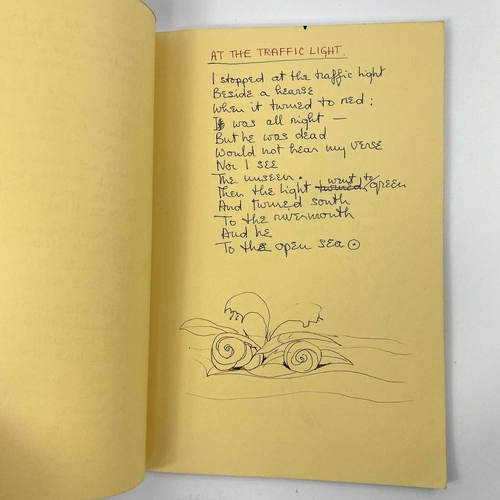 AT THE TRAFFIC LIGHT.
I stopped at the traffic light
Beside a hearse
When it turned to red:
It was all right —
But he was dead
Would not hear my verse
Nor I see
The unseen.
Then the light turned went to green
And turned south
To the rivermouth
And he
To the open sea